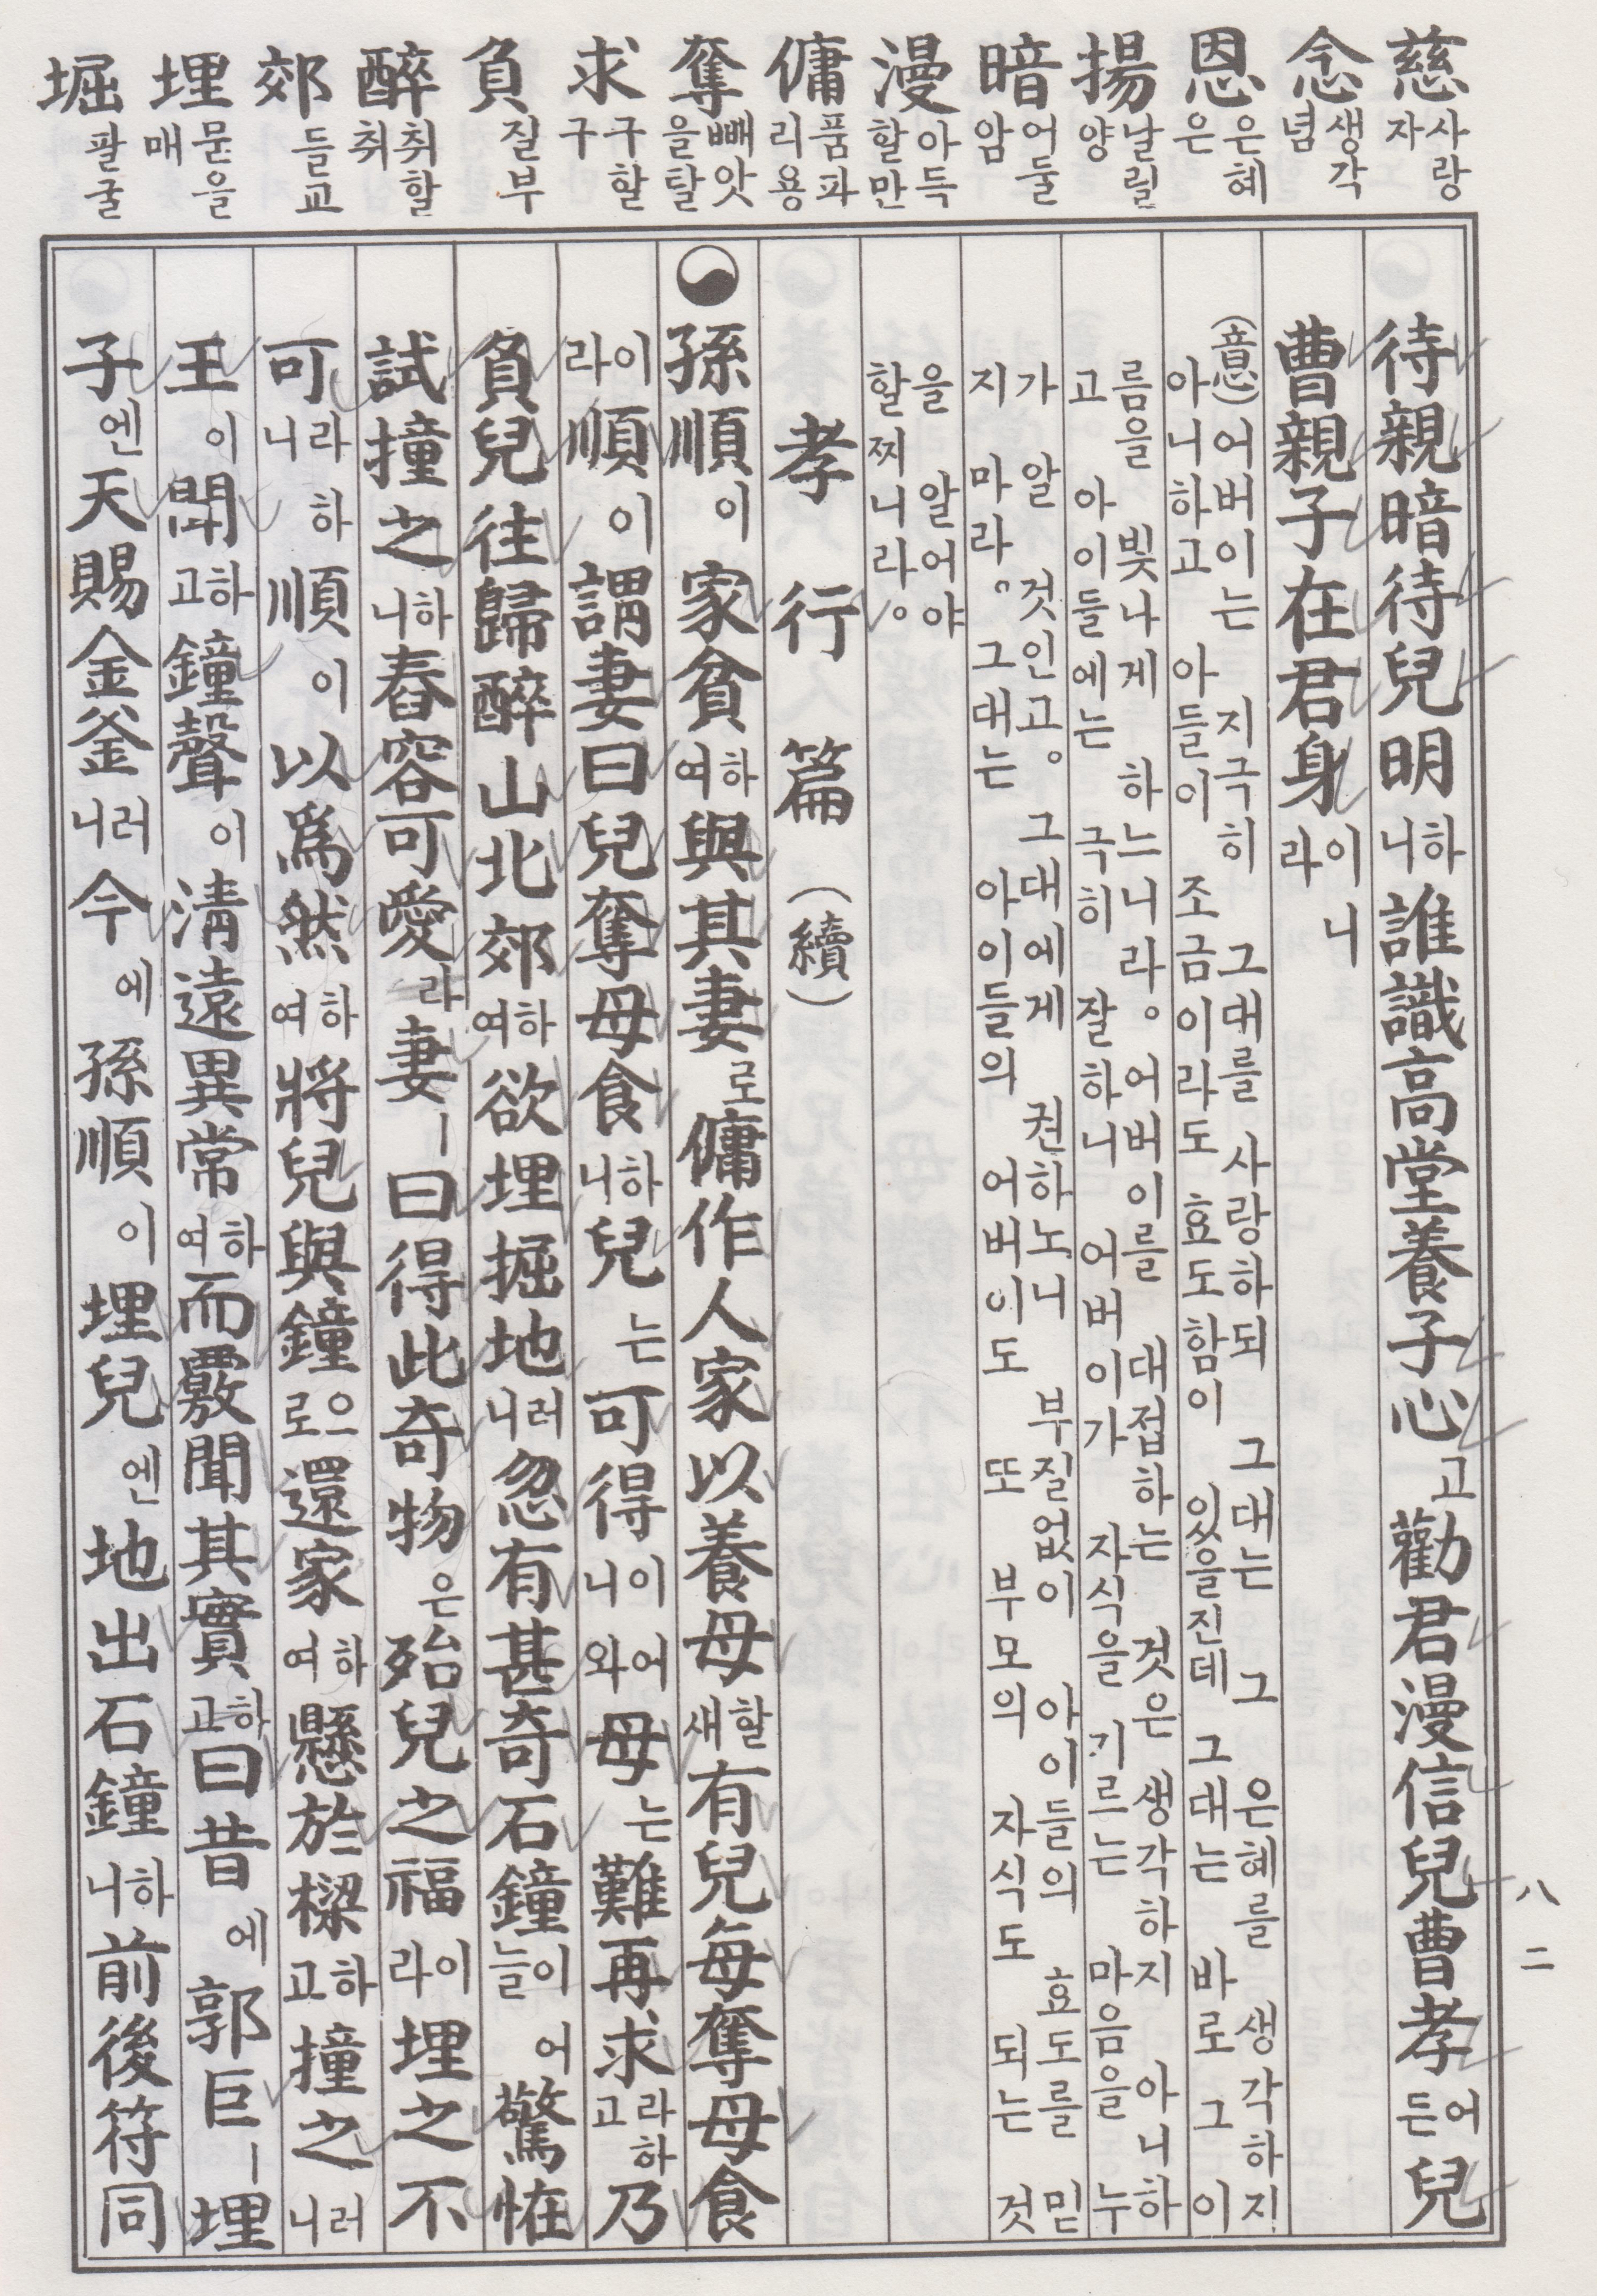 慈 사랑 자
念 생각 념
恩 은혜 은
揚 날릴 양
暗 어둘 암
漫 아득할 만
傭 품파리 용
奪 빼앗을 탈
求 구할 구
負 질 부
醉 취할 취
郊 들 교
埋 묻을 매
堀 팔 굴
待親暗待兒明하니誰識高堂養子心고勸君漫信兒曹孝어든兒
曹親子在君身이니라
(意)어버이는 지극히 그대를 사랑하되 그대는 그 은혜를 생각하지
아니하고 아들이 조금이라도 효도함이 있을진데 그대는 바로 그 이
름을 빛나게 하느니라。어버이를 대접하는 것은 생각하지 아니하
고。아이들에는 극히 잘하니 어버이가 자식을 기르는 마음을 누
가 알 것인고。그대에게 권하노니 부질없이 아이들의 효도를 믿
지 마라。그대는 아이들의 어버이도 또 부모의 자식도 되는 것
을 알어야
할찌니라。
孝行篇(續)
孫順이家貧하여與其妻로傭作人家以養母할새有兒每奪母食
이라順이謂妻曰兒奪母食하니兒는可得이니어와母는難再求라하고乃
負兒往歸醉山北郊하여欲埋掘地러니忽有甚奇石鐘이어늘驚恠
試撞之하니舂容可愛라妻ㅣ曰得此奇物은殆兒之福이라埋之不
可라하니順이以爲然하여將兒與鐘으로還家하여懸於樑하고撞之러니
王이聞하고鐘聲이淸遠異常하여而覈聞其實하고曰昔에郭巨ㅣ埋
子엔天賜金釜러니今에孫順이埋兒엔地出石鐘하니前後符同
八二